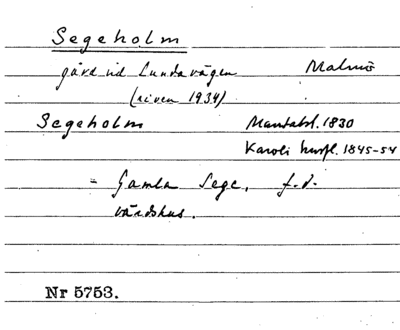 Segeholm
gård vid Lundavägen Malmö
(riven 1934)
Segeholm Mantalsl. 1830
Karoli husfl. 1845-54
= Gamla Sege, f.d.
värdshus.
Nr 5753.